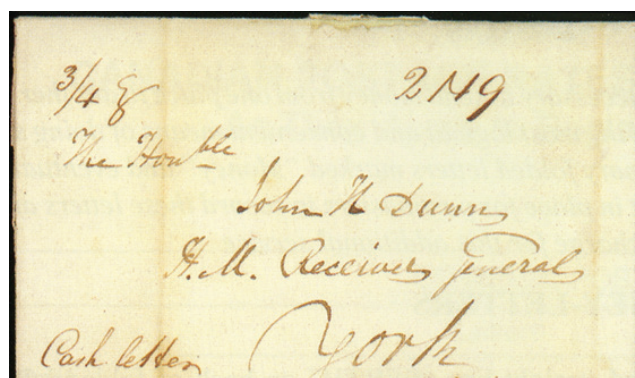 3/4 2 N 9
The Honble
John H Dunn
H. M. Receiver General
Cash letter York